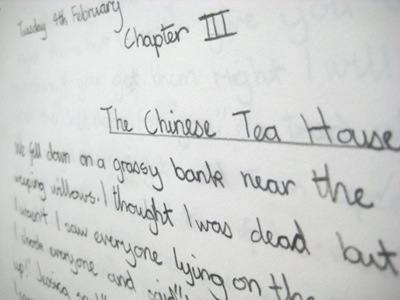 Tuesday 4th February
Chapter III
The Chinese Tea House
We fell down on a grassy bank near the
weeping willows. I thought I was dead but
I wasn't I saw everyone lying on the
I shook everyone and said
up!" Jessica